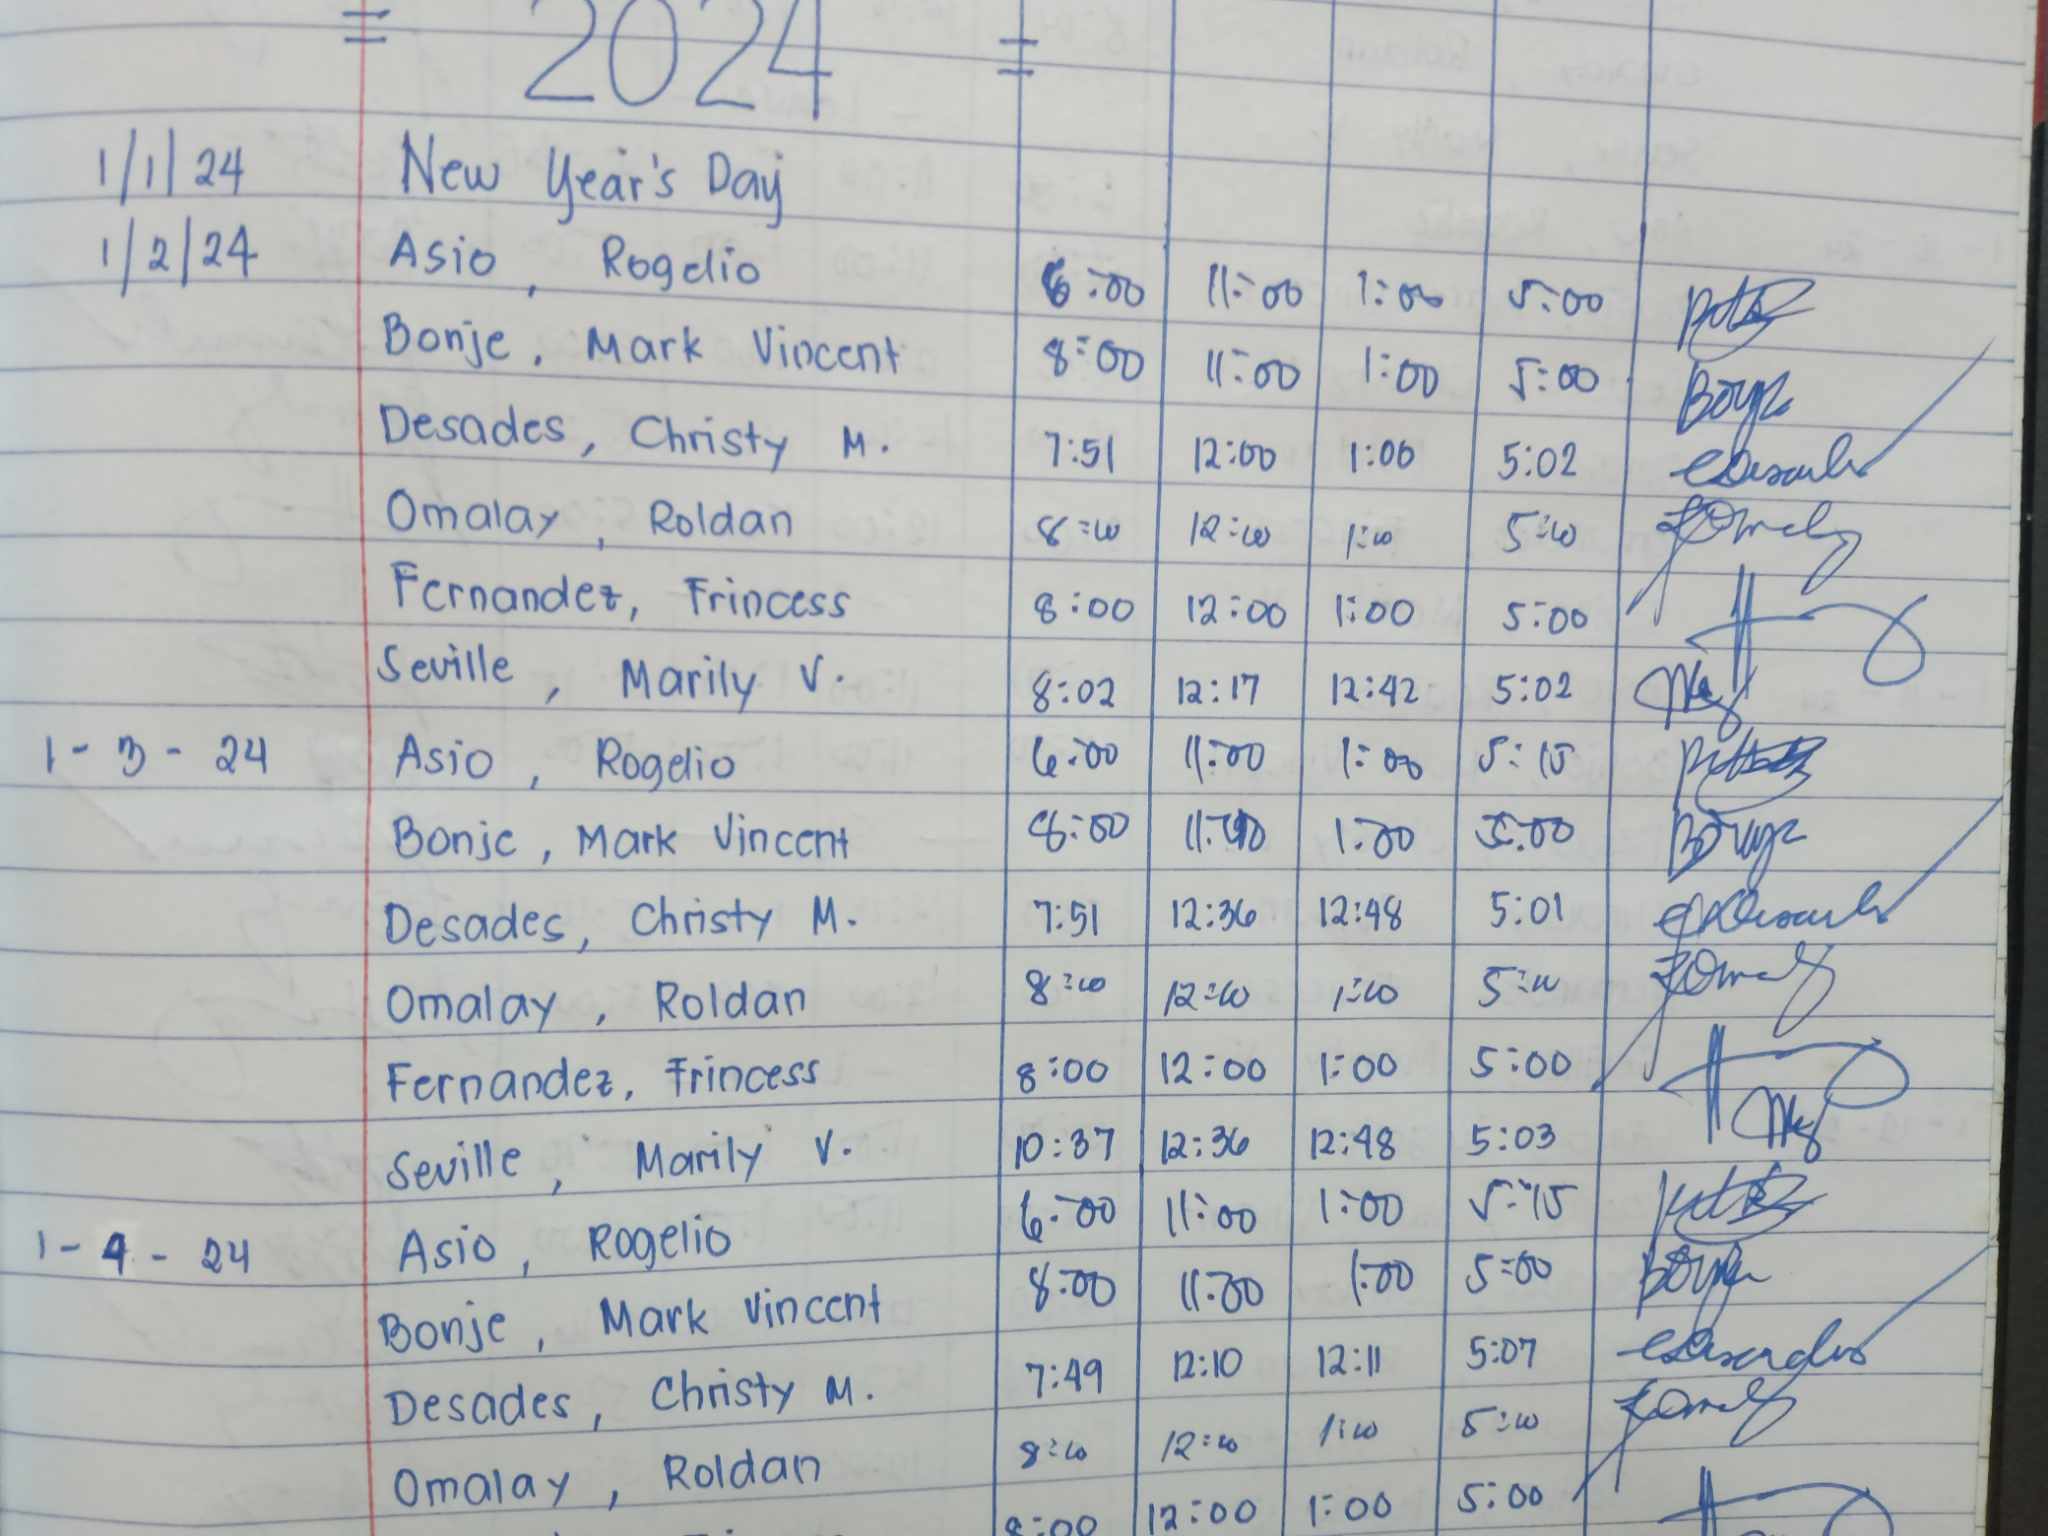 = 2024 =
1/1/24 New Year's Day
1/2/24 Asio, Rogelio 6:00 11:00 1:00 5:00
Bonje, Mark Vincent 8:00 11:00 1:00 5:00
Desades, Christy M. 7:51 12:00 1:00 5:02
Omalay, Roldan 8:00 12:00 1:00 5:00
Fernandez, Frincess 8:00 12:00 1:00 5:00
Seville, Marily V. 8:02 12:17 12:42 5:02
1-3-24 Asio, Rogelio 6:00 11:00 1:00 5:15
Bonje, Mark Vincent 8:00 11:00 1:00 5:00
Desades, Christy M. 7:51 12:36 12:48 5:01
Omalay, Roldan 8:00 12:00 1:00 5:00
Fernandez, Frincess 8:00 12:00 1:00 5:00
Seville, Marily V. 10:37 12:36 12:48 5:03
1-4-24 Asio, Rogelio 6:00 11:00 1:00 5:15
Bonje, Mark Vincent 8:00 11:00 1:00 5:00
Desades, Christy M. 7:49 12:10 12:11 5:07
Omalay, Roldan 8:00 12:00 1:00 5:00
8:00 12:00 1:00 5:00